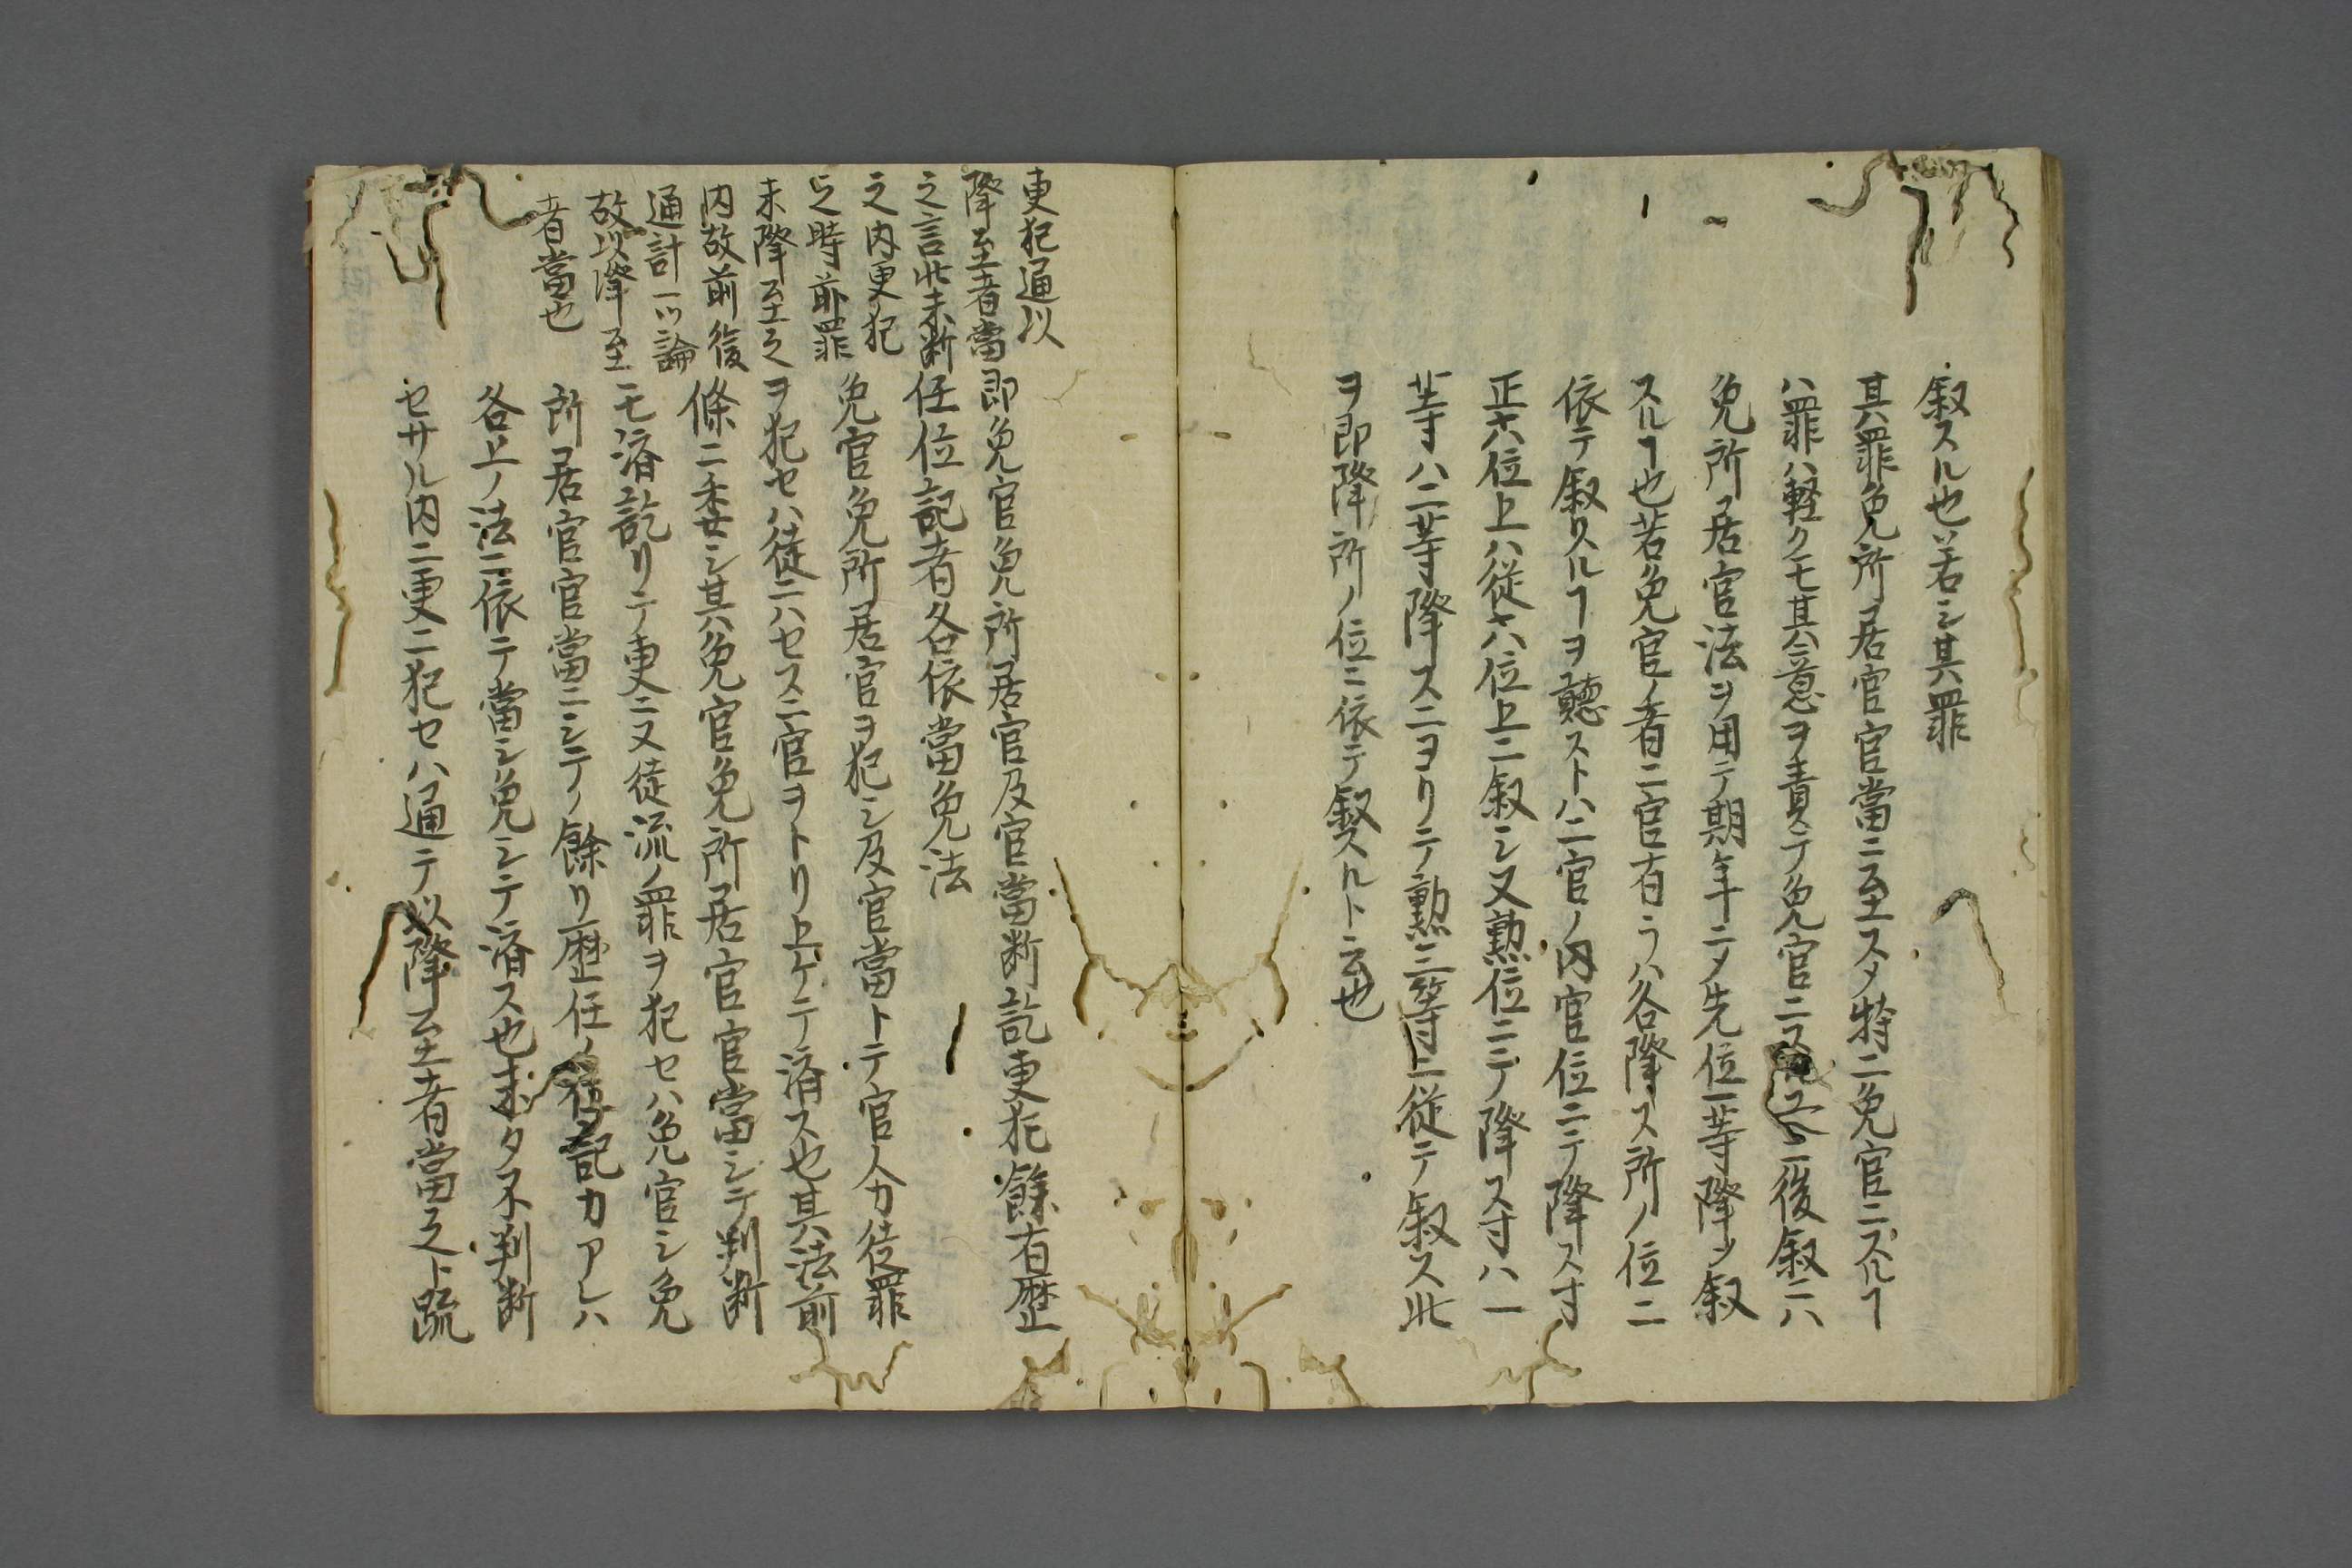 叙スル也若シ其罪
其罪免所居官官當ニ至スメ特ニ免官ニスルヿ
ハ罪ハ軽クモ其意ヲ責テ免官ニス後叙ニハ
免所居官法ヲ用テ期年ニメ先位一等降シ叙
スルヿ也若免官ノ者ニ官有ラハ各降ス所ノ位ニ
依テ叙スルヿヲ聴ストハ二官ノ内官位ニテ降ス寸
正六位上ハ従六位上ニ叙シ又勲位ニテ降ス寸ハ一
等ハ二等降スニヨリテ勲三等ニ従テ叙ス此
ヲ即降所ノ位ニ依テ叙スルト云也
更犯通以
降至者當
之言此未断
之内更犯
之時前罪
未降至之
内故前後
通計一ツ論
故以降至
者當也
即免官免所居官及官當断訖更犯餘有歴
任位記者各依當免法
免官免所居官ヲ犯シ及官當トテ官人カ徒罪
ヲ犯セハ徒ニハセスニ官ヲトリ上ケテ済ス也其法前
條ニ委シ其免官免所居官官當シテ判断
モ済訖リテ更ニ又徒流ノ罪ヲ犯セハ免官シ免
所居官官當ニシテノ餘リ歴任ノ位記カアレハ
各上ノ法ニ依テ當シ免シテ済ス也未タ不判断
セサル内ニ更ニ犯セハ通テ以降至者當之ト疏